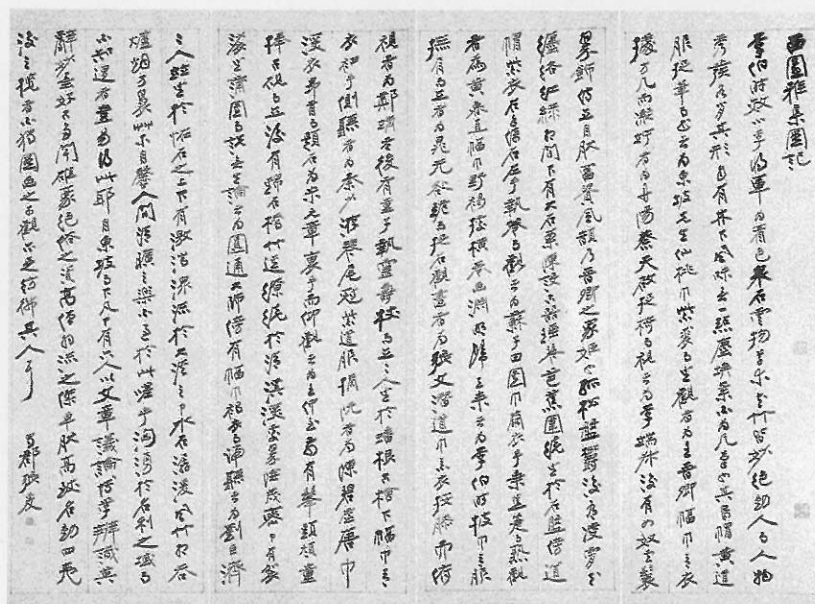 西園雅集圖記
李伯時效小李將軍為著色泉石雲物草木花竹皆妙絕動人而人物
秀發各肖其形自有林下風味無一點塵埃氣不為凡筆也其烏帽黃道
服捉筆而書者為東坡先生仙桃巾紫裘而坐觀者為王晉卿幅巾青衣
據方几而凝竚者為丹陽蔡天啟捉椅而視者為李端叔後有女奴雲鬟
翠飾侍立自然富貴風韻乃晉卿之家姬也孤松盤鬱後有凌霄
纏絡紅綠相間下有大石案陳設古器瑤琴芭蕉圍繞坐於石盤傍道
帽紫衣右手倚石左手執卷而觀者為蘇子由團巾繭衣手秉蕉箑而熟觀
者為黃魯直幅巾野褐據橫卷畫淵明歸去來者為李伯時披巾青服
撫肩而立者為晁无咎跪而捉石觀畫者為張文潛道巾素衣按膝而俯
視者為鄭靖老後有童子執靈壽杖而立二人坐於盤根古檜下幅巾青
衣袖手側聽者為秦少游琴尾冠紫道服摘阮者為陳碧虛唐巾
深衣昂首而題石者為米元章袖手而仰觀者為王仲至前有鬅頭頑童
捧古硯而立後有錦石橋竹逕繚繞於清溪深處翠陰茂密中有袈
裟坐蒲團而說無生論者為圓通大師傍有幅巾褐衣而諦聽者為劉巨濟
二人並坐於怪石之上下有激湍潨流於大溪之中水石潺湲風竹相吞
爐煙方裊草木自馨人間清曠之樂不過於此嗟乎洶湧於名利之域而
不知退者豈易得此耶自東坡而下凡十有六人以文章議論博學辨識英
辭妙墨好古多聞雄豪絕俗之資高僧羽流之傑卓然高致名動四夷
後之覽者不獨圖畫之可觀亦足彷彿其人耳
蜀郡張爰